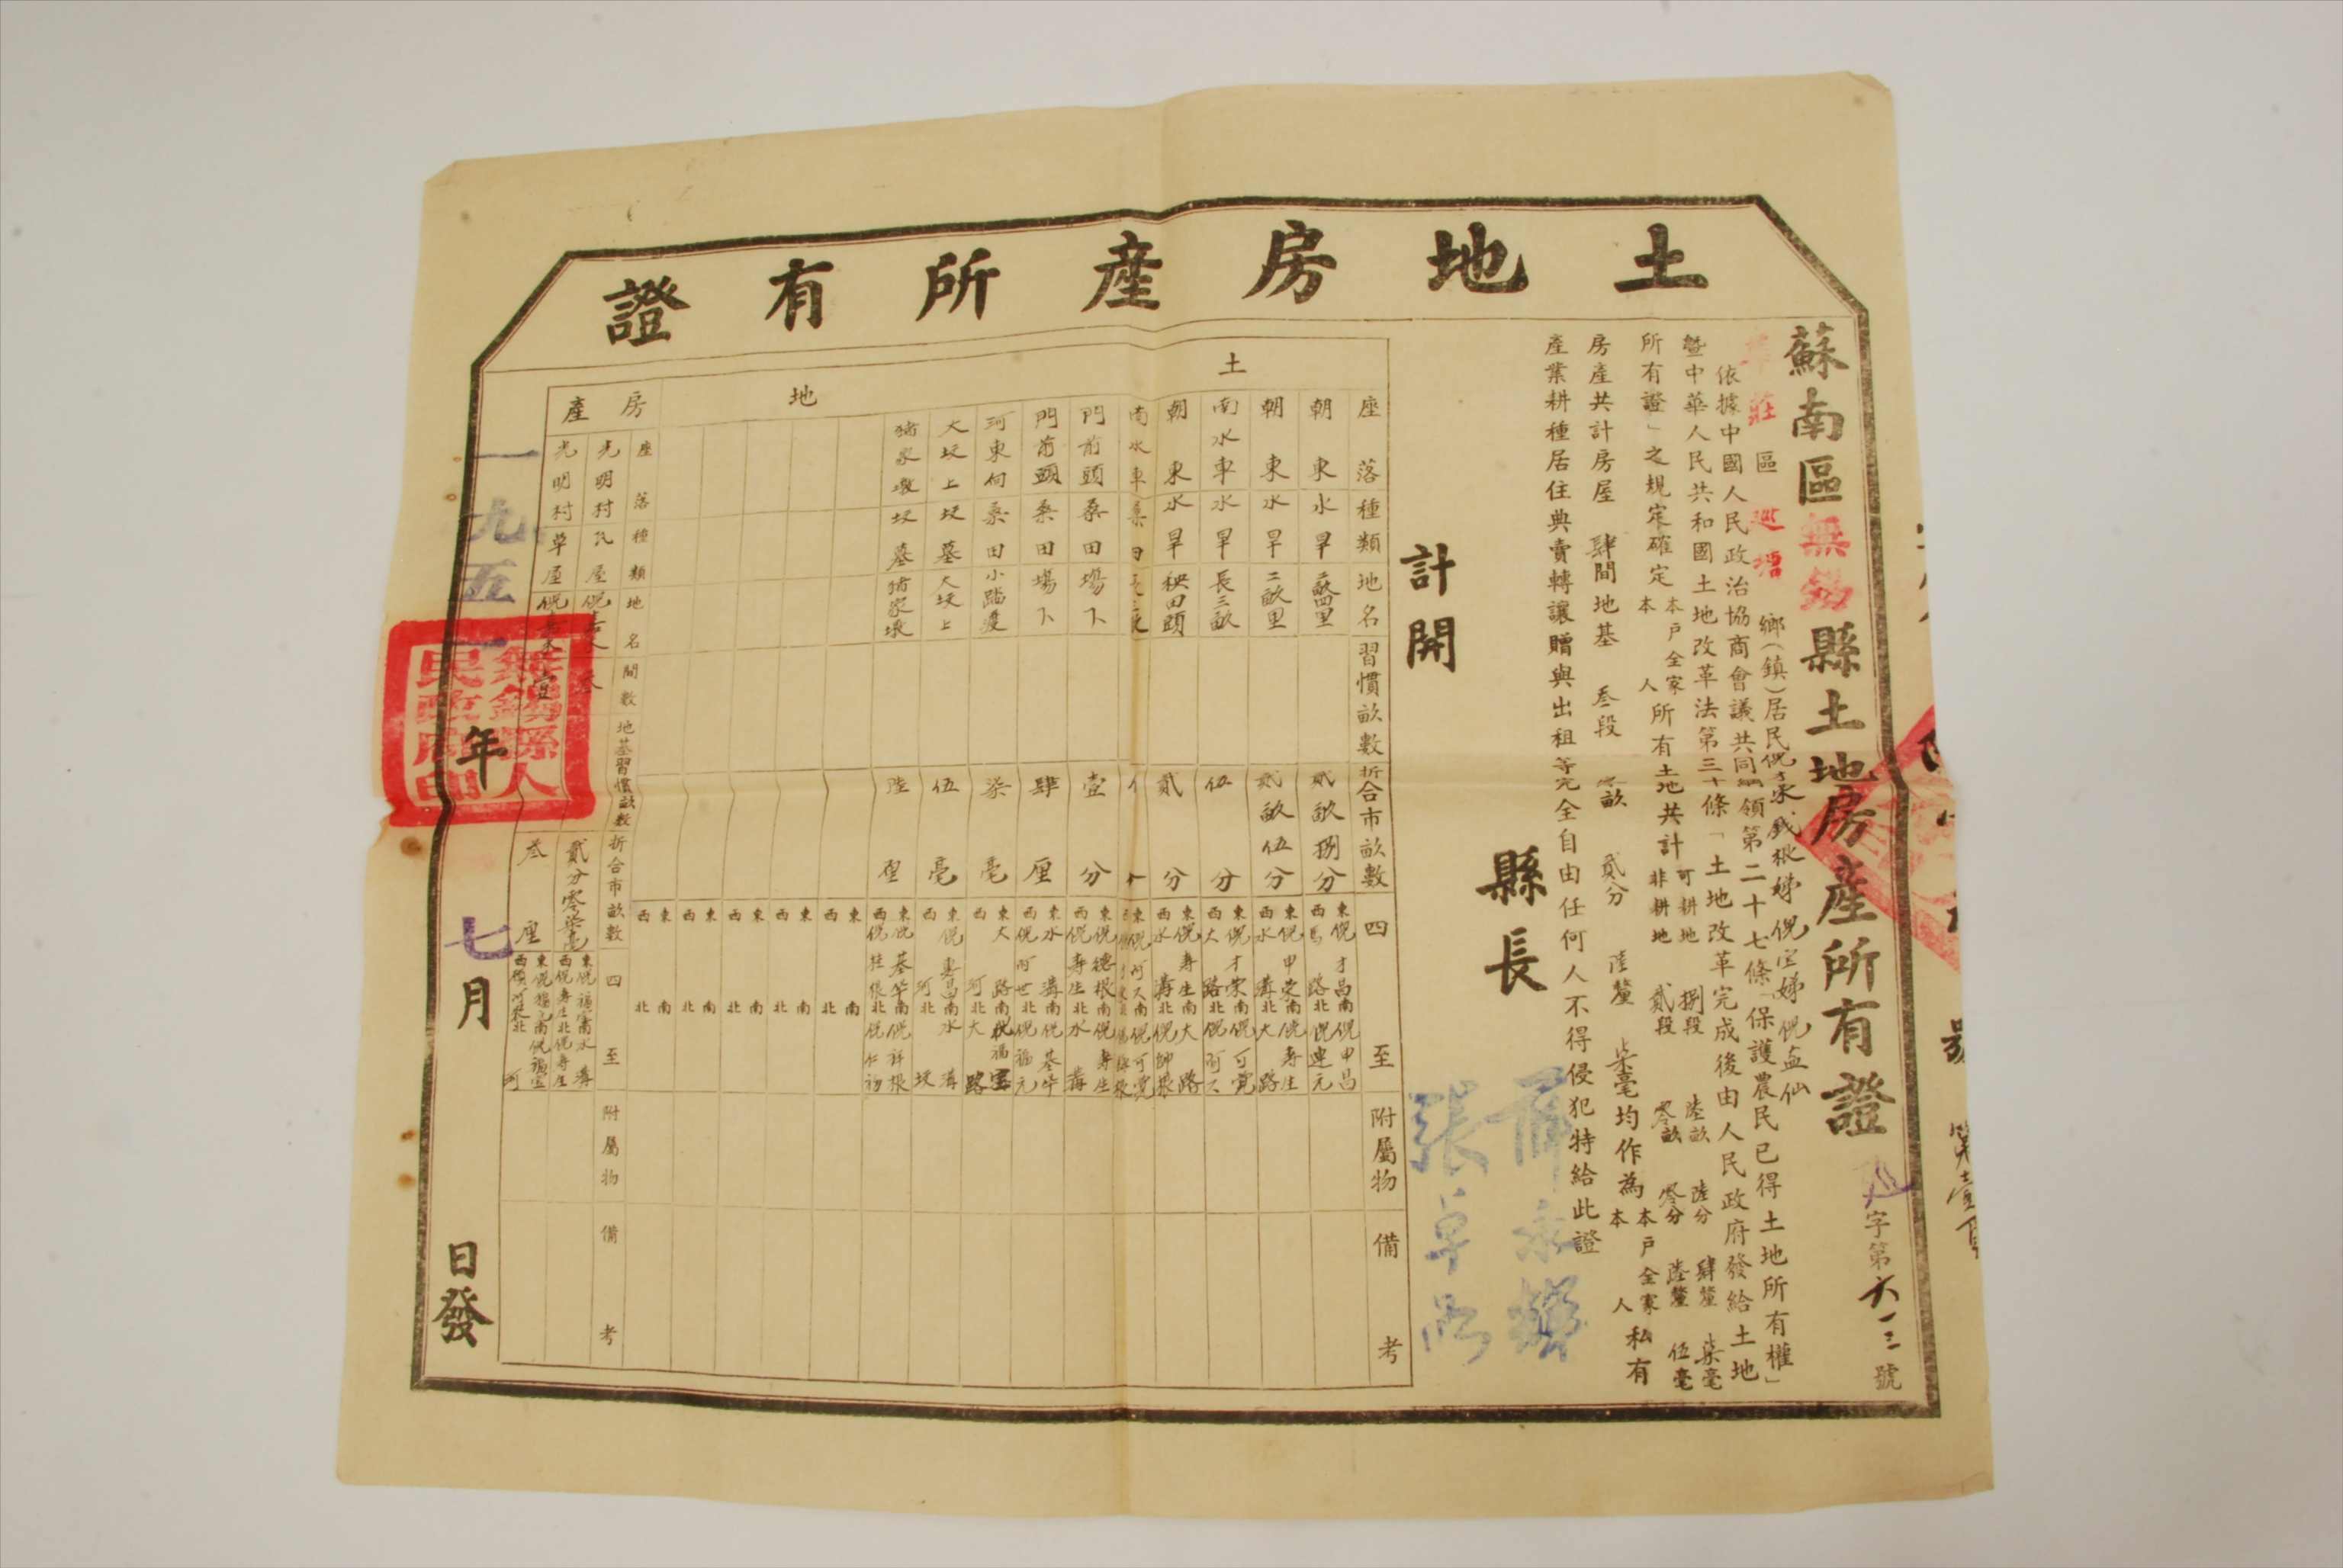 土地房產所有證
蘇南區無錫縣土地房產所有證
字第六一三號
莊區 鄉(鎮)居民倪
依據中國人民政治協商會議共同綱領第二十七條「保護農民已得土地所有權」
暨中華人民共和國土地改革法第三十條「土地改革完成後由人民政府發給土地
所有證」之規定確定本戶全家本人所有土地共計可耕地捌段陸畝陸分肆釐柒毫非耕地貳段零畝零分陸釐伍毫
房產共計房屋肆間地基叁段畝貳分陸釐柒毫均作為本戶全家本人私有
產業耕種居住典賣轉讓贈與出租等完全自由任何人不得侵犯特給此證
計開
縣長
土地
座落 種類 地名 習慣畝數 折合市畝數 四至 附屬物 備考
朝東 水旱 里 貳畝捌分 東倪才昌南倪申昌西馬路北倪連元
朝東 水旱 二畝里 貳畝伍分 東倪申榮南倪壽生西水溝北大路
南水車 水旱 長三畝 伍分 東倪才榮南倪可覺西大路北倪阿
朝東 水旱 秧田頭 貳分 東倪壽生南大路西水溝北倪
南水車 桑田
門前頭 桑田 場下 壹分 東倪德根南倪壽生西倪壽生北水溝
門前頭 桑田 場下 肆厘 東水溝南倪基華西倪阿世北倪福元
河東何 桑田 小踏渡 柒毫 東大路南倪福寶西河北大路
大坟上 坟墓 大坟上 伍毫 東倪壽昌南水溝西河北坟
猪家墩 坟墓 猪家墩 陸厘 東倪基華南倪祥根西倪桂張北倪仁初
東南西北
東南西北
東南西北
東南西北
東南西北
房產
座落 種類 地名 間數 地基習慣畝數 折合市畝數 四至 附屬物 備考
光明村 瓦屋 叁 貳分零柒毫 東倪福寶南水溝西倪壽生北倪壽生
光明村 草屋 壹 叁厘 南倪福寶 北河
一九五一年七月日發
無錫縣人民政府印